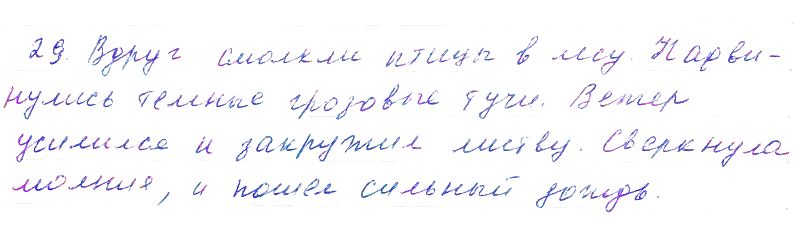 29. Вдруг смолкли птицы в лесу. Надви-
нулись темные грозовые тучи. Ветер
усилился и закружил листву. Сверкнула
молния, и пошел сильный дождь.